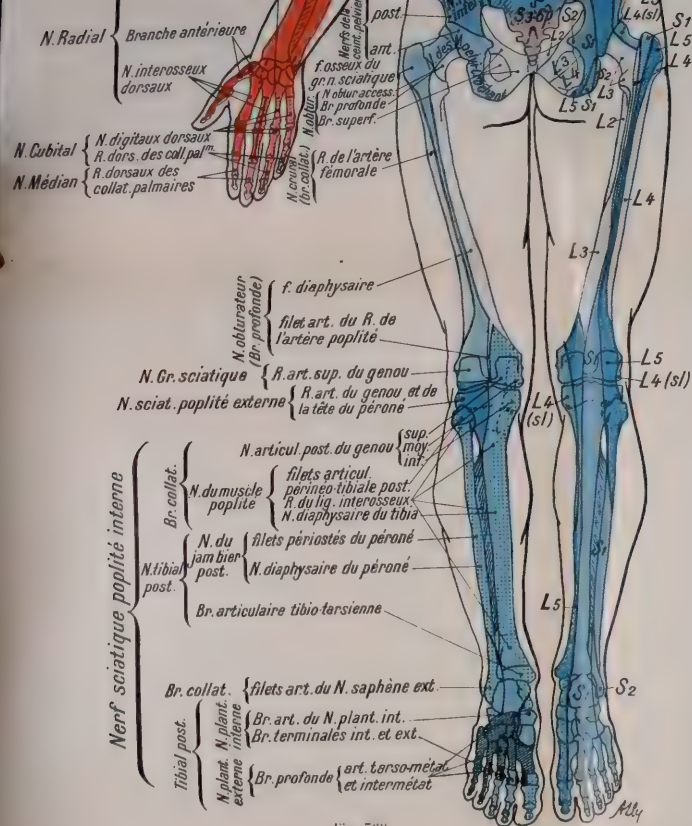 N. Radial
Branche antérieure
N. interosseux
dorsaux
N. Cubital
N. digitaux dorsaux
R. dors. des coll. palm.
N. Médian
R. dorsaux des
collat. palmaires
Nerfs de la
ceint. pelvien
post.
ant.
f. osseux du
gr. n. sciatique
N. obtur.
N obtur access.
Br profonde
Br. superf.
N. crural
(br. collat.)
R. de l'artère
fémorale
N. obturateur
(Br. profonde)
f. diaphysaire
filet art. du R. de
l'artère poplité
N. Gr. sciatique
R. art. sup. du genou
N. sciat. poplité externe
R. art. du genou et de
la tête du pérone
Nerf sciatique poplité interne
Br. collat.
N. articul. post. du genou
sup.
moy.
inf.
N. du muscle
poplité
filets articul.
périnéo-tibiale post.
R. du lig. interosseux
N. diaphysaire du tibia
N. tibial
post.
N. du
jambier
post.
filets périostés du péroné
N. diaphysaire du péroné
Br. articulaire tibio-tarsienne
Br. collat.
filets art. du N. saphène ext.
Tibial post.
N. plant.
interne
Br. art. du N. plant. int.
Br. terminales int. et ext
N. plant.
externe
Br. profonde
art. tarso-métat
et intermétat
S2
L2
S1
L4 (sl)
S1
L5
L4
L3
L4
S2
L3
L5 S1
L2
L4
L3
S1
L5
L4 (sl)
L4
(sl)
S1
L5
S2
Ally